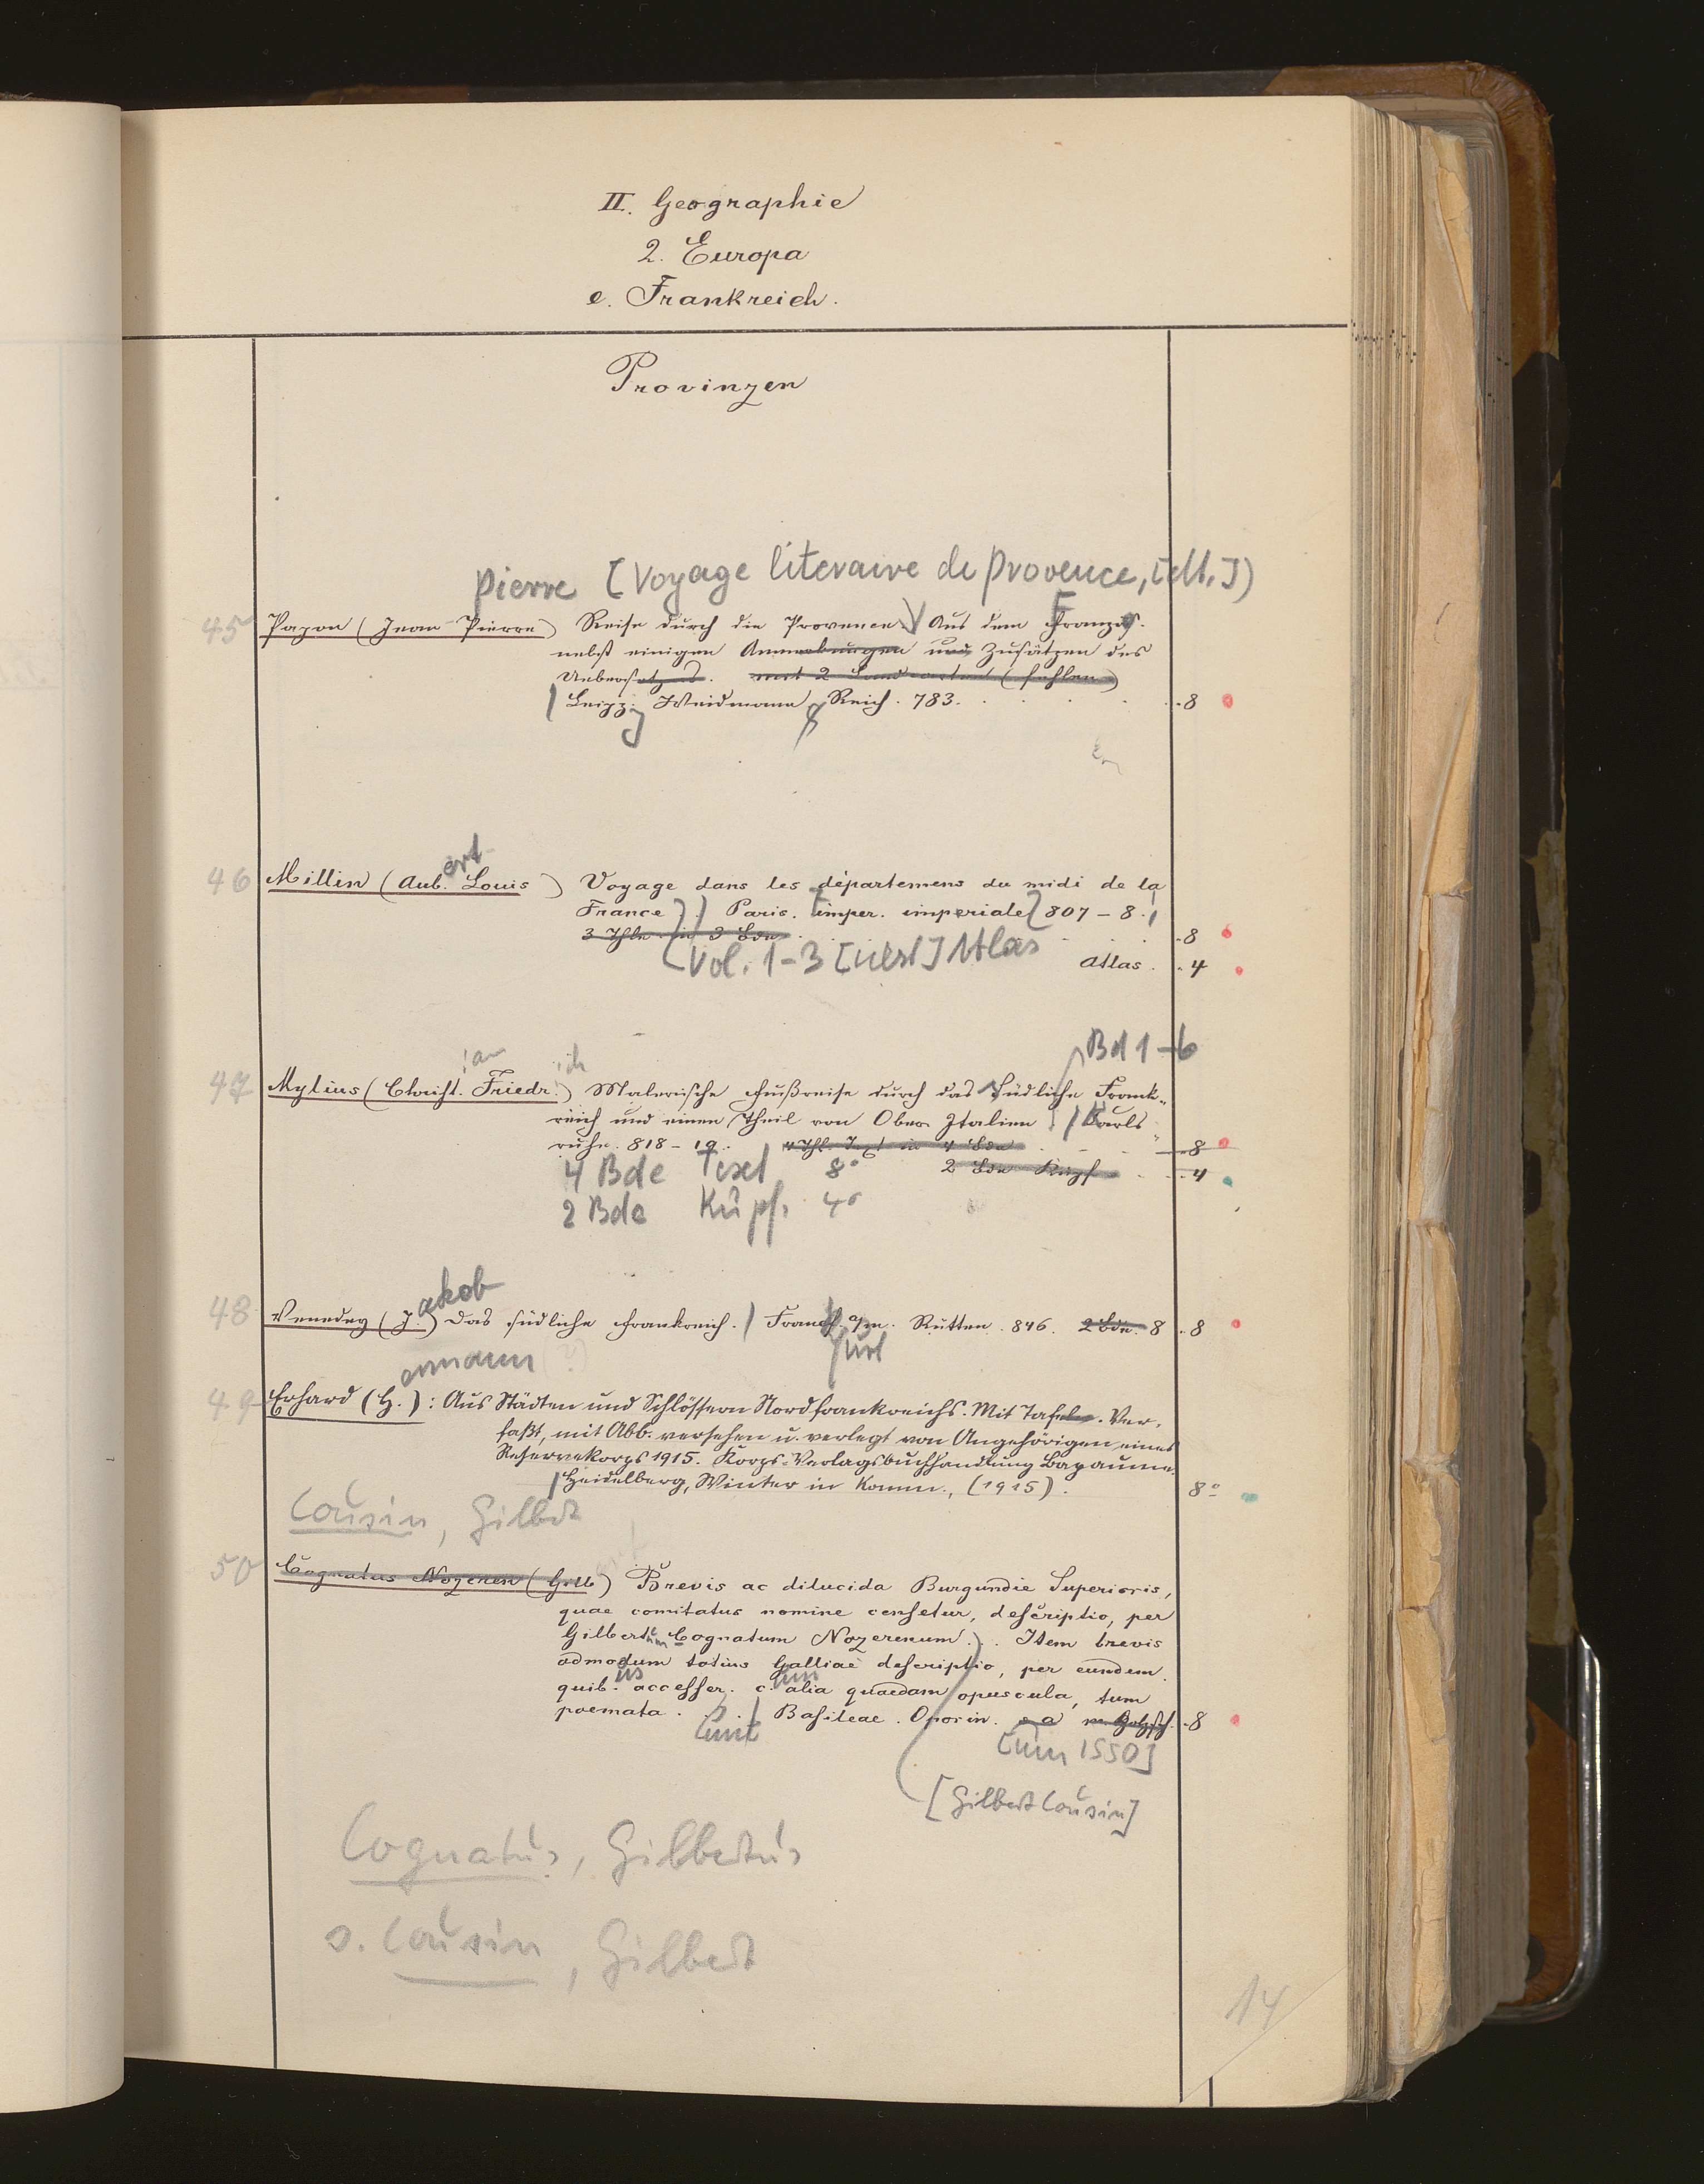 II. Geographie
2. Europa
e. Frankreich.
Provinzen
Pierre [Voyage literaire de Provence,
45 Papon (Jean-Pierre) Reise durch die Provence. Aus dem Französ.
nebst einigen Anmerkungen und Zusätzen des
Uebersetzers. mit 2 Landcarten (fehlen)
Leipz. Weidmann & Reich. 783. 8
ert
46 Millin (Aub. Louis) Voyage dans les départemens du midi de la
France Paris. imper. imperiale 807-8.
3 Thle. in 3 Bdn 8
Vol. 1-3 [nebst] Atlas Atlas. 4
Bd 1-6
ian ich
47 Mylius (Christ. Friedr.) Malerische Fußreise durch das südliche Frank-
reich und einen Theil von Ober Italien Karls-
ruhe. 818-19. 4 Thle. Text in 4 Bdn 8
4 Bde Text 8° 2 Bde Kupf. 4
2 Bde Kupf. 4°
akob
48 Venedey (J.) Das südliche Frankreich. Frankf. a/m. Rütten. 846. 2 Bde. 8 8
furt
ermann (?)
49 Erhard (H.): Aus Städten und Schlössern Nordfrankreichs. Mit Tafeln. Ver-
faßt, mit Abb. versehen u. verlegt von Angehörigen eines
Reservekorps 1915. Korps-Verlagsbuchhandlung Bapaume.
Heidelberg, Winter in Komm., (1915). 8°
Cousin, Gilbert
50 Cognatus Nozeren (Gilb) Brevis ac dilucida Burgundie Superioris,
quae comitatus nomine censetur, descriptio, per
Gilbertum Cognatum Nozerenum. Item brevis
admodum totius Galliae descriptio, per eundem.
quib. accesser. c. alia quaedam opuscula, tum
us un
poemata. Basileae. Oporin. s a m. Holzsch. 8
[um 1550]
[Gilbert Cousin]
Cognatus, Gilbertus
s. Cousin, Gilbert
14